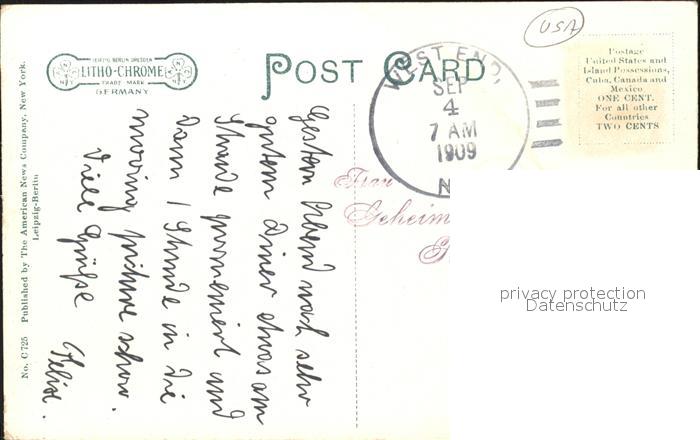 LEIPZIG BERLIN DRESDEN
LITHO-CHROME
TRADE MARK
GERMANY
POST CARD
WEST END,
SEP
4
7 AM
1909
N
USA
Postage
United States and
Island Possessions,
Cuba, Canada and
Mexico
ONE CENT.
For all other
Countries
TWO CENTS
No. C 725 Published by The American News Company, New York.
Leipzig-Berlin
Gestern Abend nach sehr
gutem Diner etwas am
Strande promeniert und
dann 1 Stunde in die
moving picture show.
Viele Grüße
Felix.
Frau
Geheim
privacy protection
Datenschutz